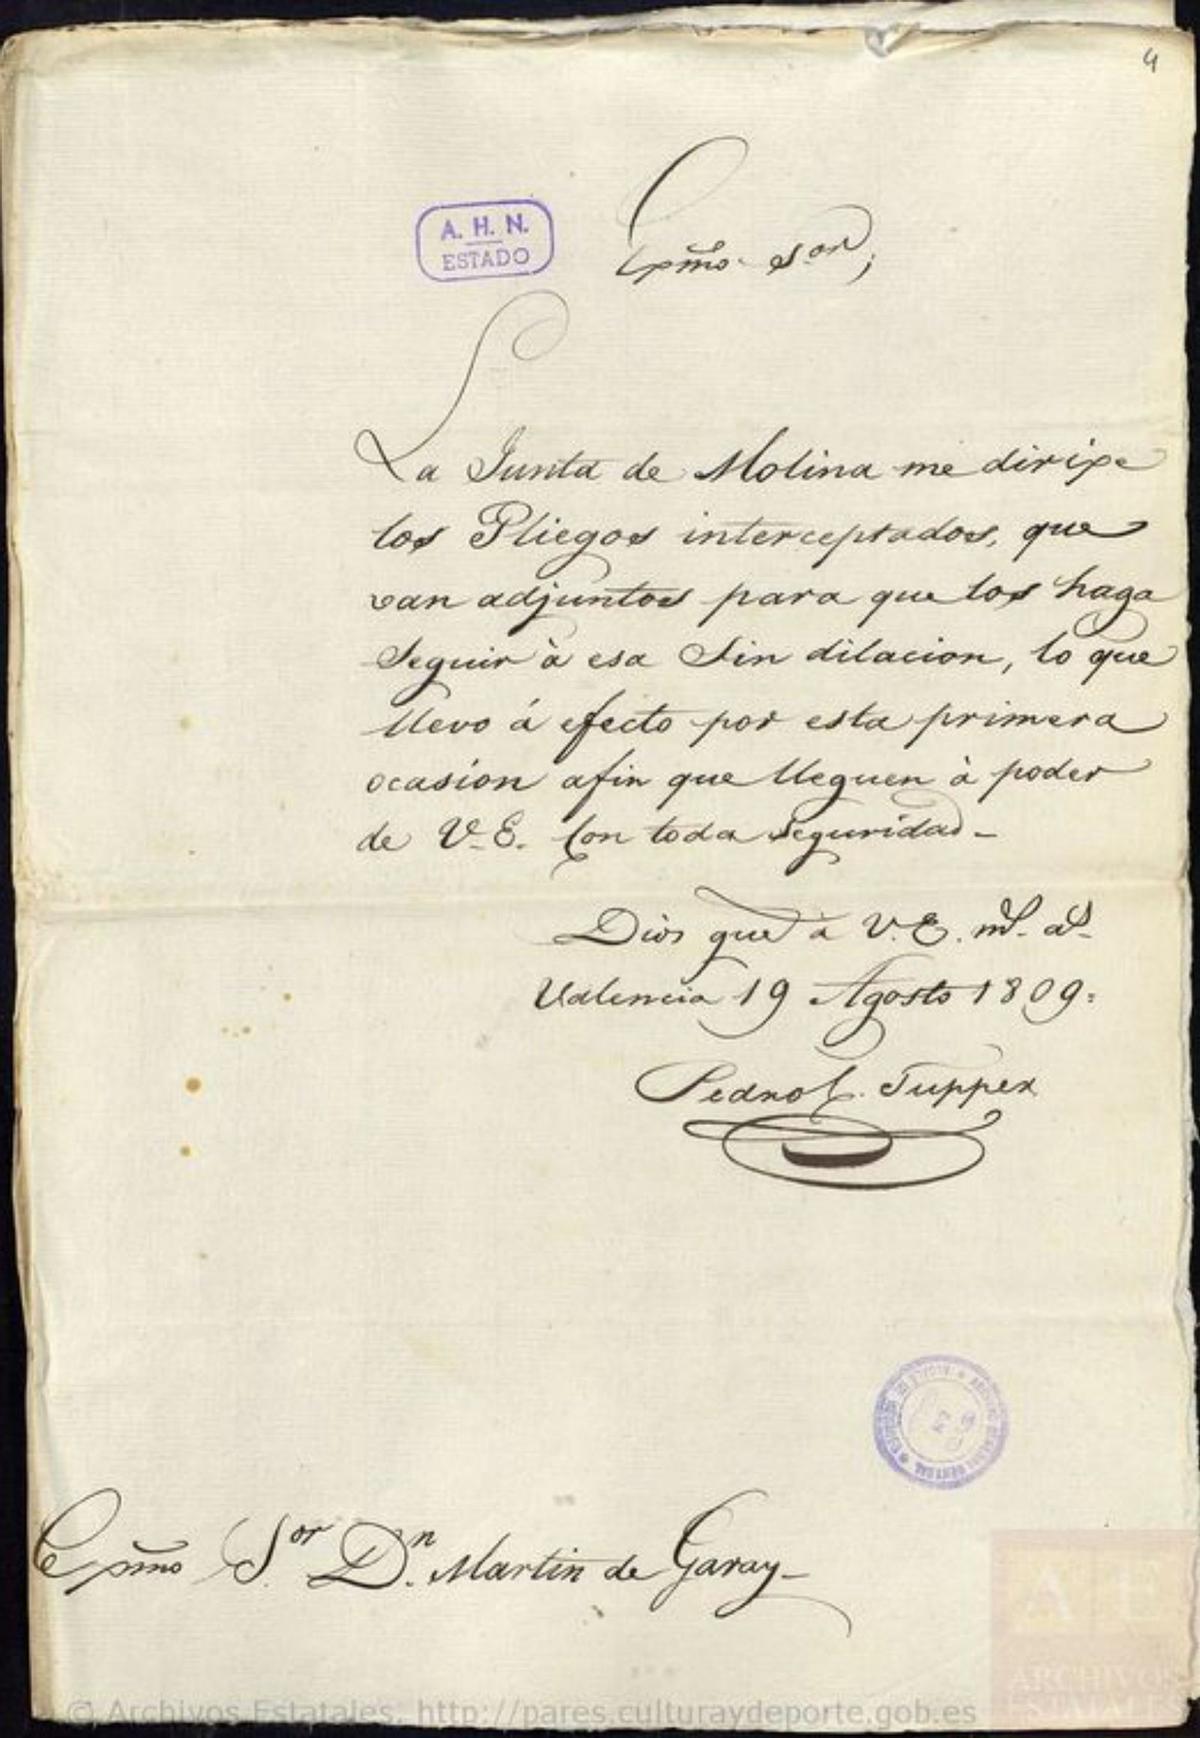 4
A. H. N.
ESTADO
Exmo. Sor,
La Junta de Molina me dirixe
los Pliegos interceptados, que
van adjuntos para que los haga
Seguir à esa Sin dilacion, lo que
llevo á efecto por esta primera
ocasion afin que lleguen à poder
de V. E. Con toda Seguridad -
Dios gue à V. E. ms. as.
Valencia 19 Agosto 1809.
Pedro C. Tupper
ARCHIVO GENERAL CENTRAL
Exmo Sor. Dn. Martin de Garay -
AE
ARCHIVOS
ESTATALES
© Archivos Estatales, http://pares.culturaydeporte.gob.es